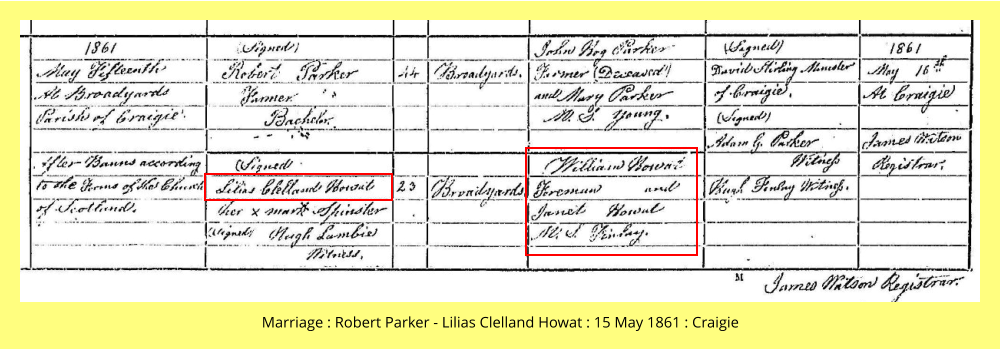 1861
May Fifteenth
At Broadyards
Parish of Craigie.
After Banns according
to the Forms of the Church
of Scotland.
(Signed)
Robert Parker
Farmer
Bachelor
(Signed
Lilias Clelland Howat
her x mark Spinster
(Signed) Hugh Lambie
Witness.
44
23
Broadyards.
Broadyards.
John Hog Parker
Farmer (Deceased)
and Mary Parker
M. S. Young.
William Howat
Foreman and
Janet Howat
M. S. Finlay.
(Signed)
David Stirling Minister
of Craigie.
(Signed)
Adam G. Parker
Witness
Hugh Finlay Witness.
1861
May 16th
At Craigie
James Watson
Registrar.
M
James Watson Registrar.
Marriage : Robert Parker - Lilias Clelland Howat : 15 May 1861 : Craigie